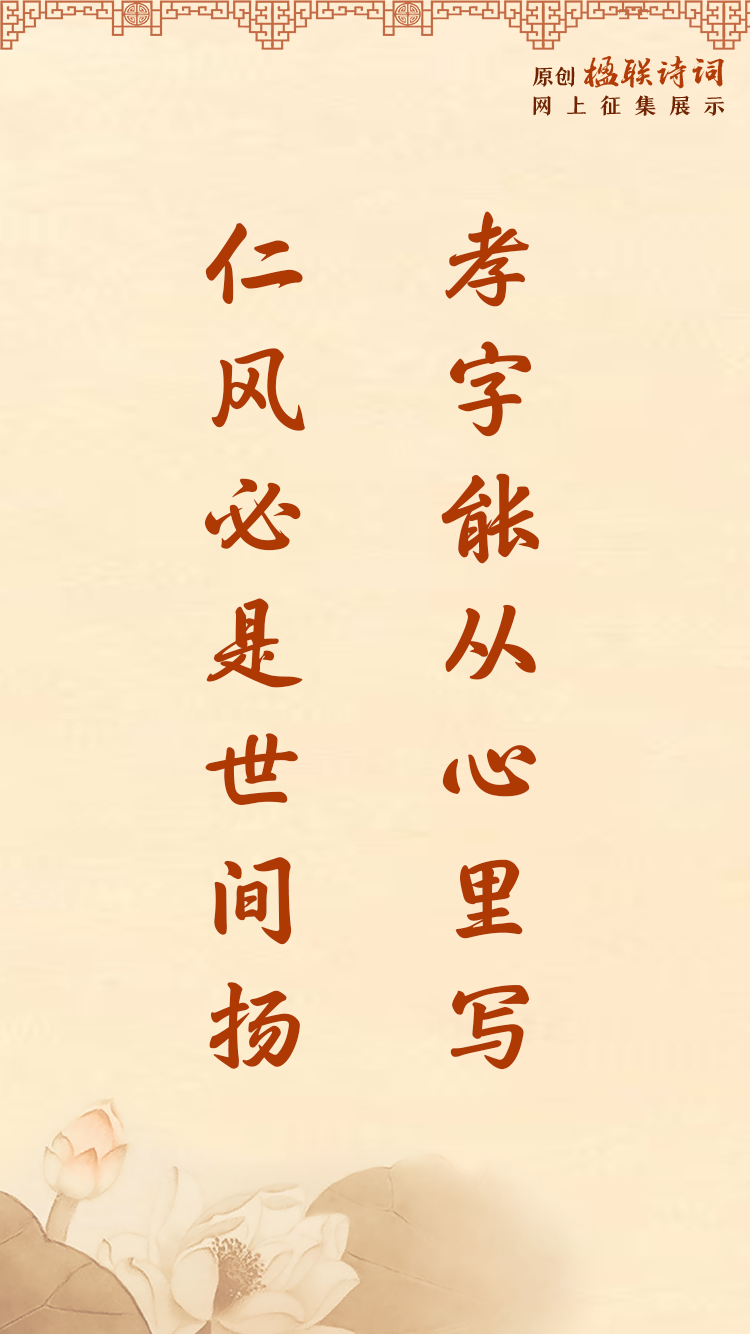 原创楹联诗词
网上征集展示
孝字能从心里写
仁风必是世间扬